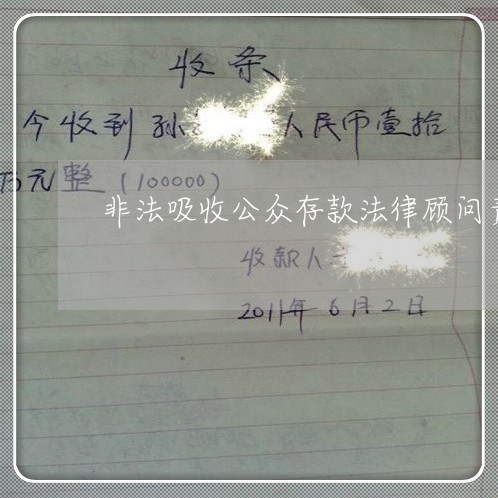 收条
今收到孙 人民币壹拾
万元整（100000）
非法吸收公众存款法律顾问
收款人
2011年6月2日